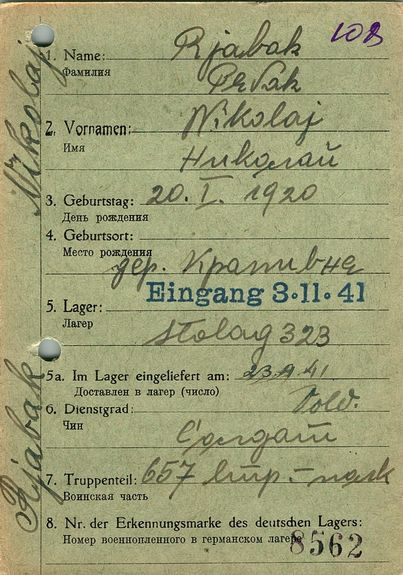 108
1. Name: Rjabak
Фамилия Рябак
2. Vornamen: Nikolaj
Имя Николай
3. Geburtstag: 20. I. 1920
День рождения
4. Geburtsort:
Место рождения
дер. Крапивне
Eingang 3. 11. 41
5. Lager:
Лагер stalag 323
5a. Im Lager eingeliefert am: 23.9.41.
Доставлен в лагер (число)
6. Dienstgrad: Sold.
Чин Солдат
7. Truppenteil: 657 стр.-полк
Воинская часть
8. Nr. der Erkennungsmarke des deutschen Lagers:
Номер военнопленного в германском лагере
8562
Nikolaj
Rjabak